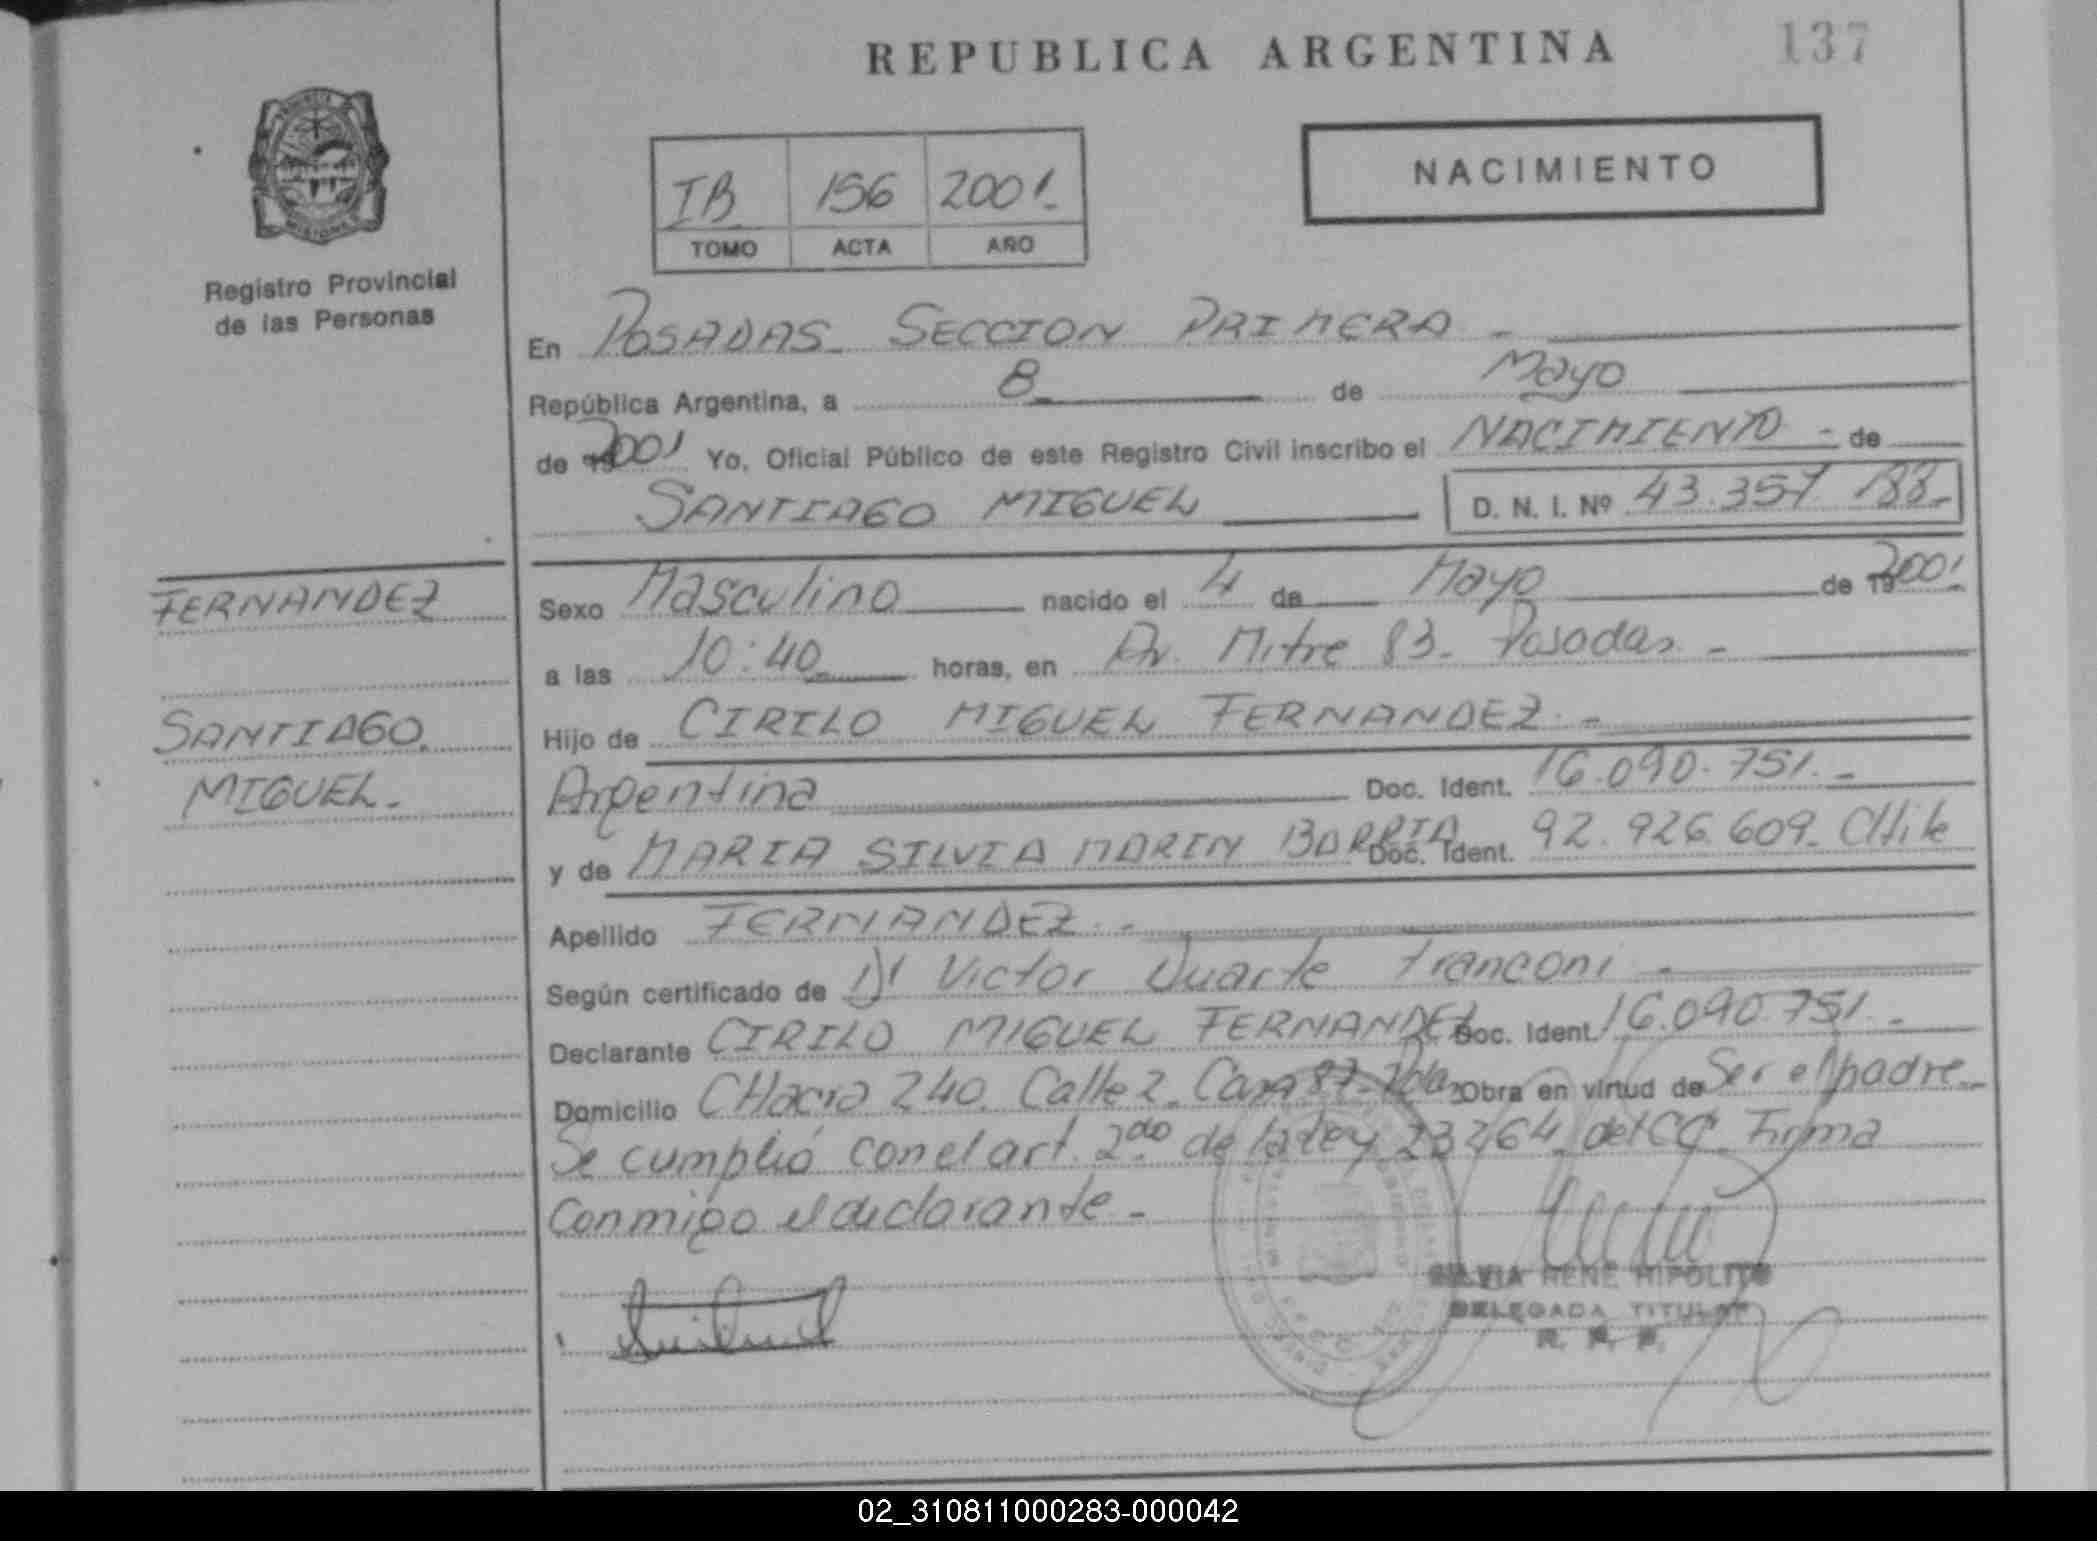 REPUBLICA ARGENTINA
137
NACIMIENTO
IB 156 2001.
TOMO ACTA AÑO
MISIONES
Registro Provincial
de las Personas
En POSADAS - SECCION PRIMERA -
República Argentina, a 8 de Mayo
de 2001 Yo, Oficial Público de este Registro Civil inscribo el NACIMIENTO - de
SANTIAGO MIGUEL D. N. I. Nº 43.357.188-
FERNANDEZ
SANTIAGO
MIGUEL.-
Sexo Masculino nacido el 4 de Mayo de 2001.
a las 10:40 horas, en Av. Mitre 83- Posadas -
Hijo de CIRILO MIGUEL FERNANDEZ -
Argentina Doc. Ident. 16.090.751.-
y de MARIA SILVIA MARIN BARRIA Doc. Ident. 92.926.609- CHile
Apellido FERNANDEZ -
Según certificado de Dr Victor Duarte Franconi -
Declarante CIRILO MIGUEL FERNANDEZ Doc. Ident. 16.090.751.-
Domicilio CHacra 240. Calle 2. Casa 87- Obra en virtud de Ser el padre-
Se cumplió con el art. 2do de la Ley 23264 del CC. Firma
Conmigo el declarante -
SILVIA RENE HIPOLITO
DELEGADA TITULAR
R. P. P.
02_310811000283-000042